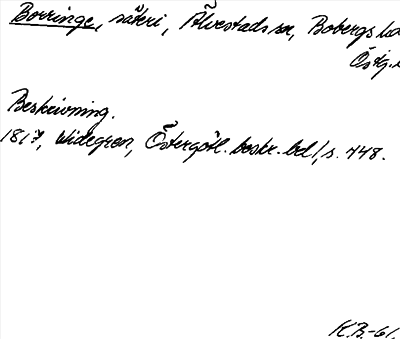 Borringe, säteri, Älvestads sn, Bobergs hd
Östg.l
Beskrivning.
1817, Widegren, Östergötl. beskr. bd 1, s. 448.
K.B.-61.